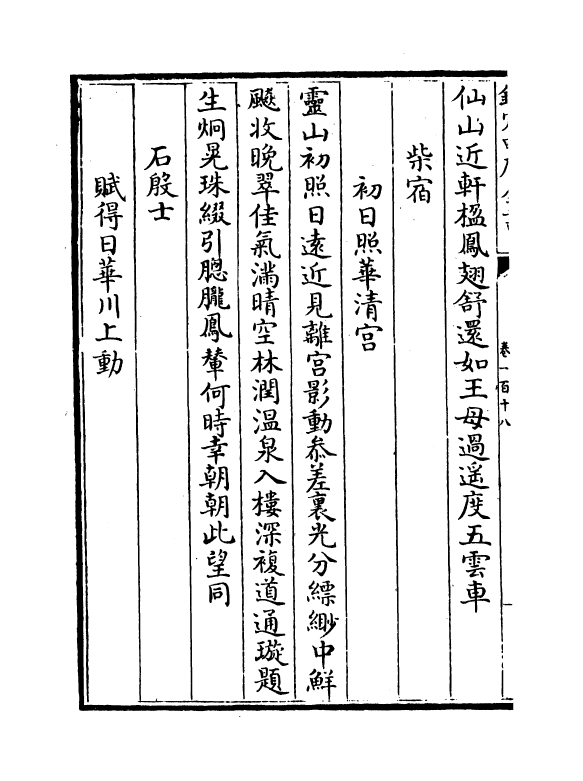 卷一百十八
仙山近軒楹鳳翅舒還如王母過遙度五雲車
柴宿
初日照華清宫
靈山初照日遠近見離宫影動叅差裏光分縹緲中鮮
飈收晩翠佳氣滿晴空林潤温泉入樓深複道通璇題
生炯晃珠綴引朧朧鳳輦何時幸朝朝此望同
石殷士
賦得日華川上動